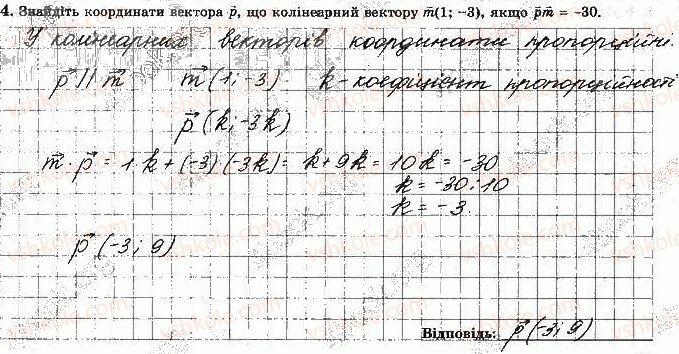 4. Знайдіть координати вектора p̄, що колінеарний вектору m̄(1; −3), якщо p̄m̄ = −30.
У колінеарних векторів координати пропорційні.
p⃗ || m⃗ m⃗ (1; -3) k - коефіцієнт пропорційності
p⃗ (k; -3k)
m⃗ · p⃗ = 1·k + (-3)·(-3k) = k + 9k = 10k = -30
k = -30 : 10
k = -3.
p⃗ (-3; 9)
Відповідь: p⃗ (-3; 9)